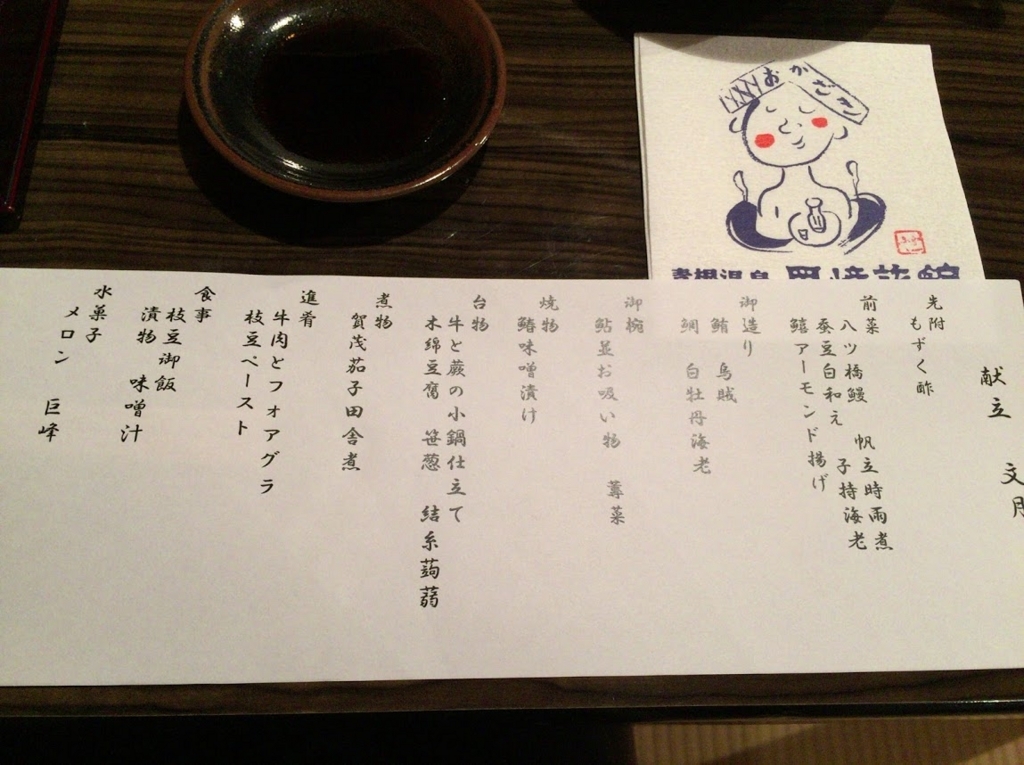 おかざき
青根温泉 岡崎旅館
献立 文月
先附
もずく酢
前菜
八ツ橋鰻 帆立時雨煮
蚕豆白和え 子持海老
鱚アーモンド揚げ
御造り
鮪 烏賊
鯛 白牡丹海老
御椀
鮎並お吸い物 蓴菜
焼物
鰆味噌漬け
台物
牛と蕨の小鍋仕立て
木綿豆腐 笹葱 結糸蒟蒻
煮物
賀茂茄子田舎煮
進肴
牛肉とフォアグラ
枝豆ペースト
食事
枝豆御飯
漬物 味噌汁
水菓子
メロン 巨峰